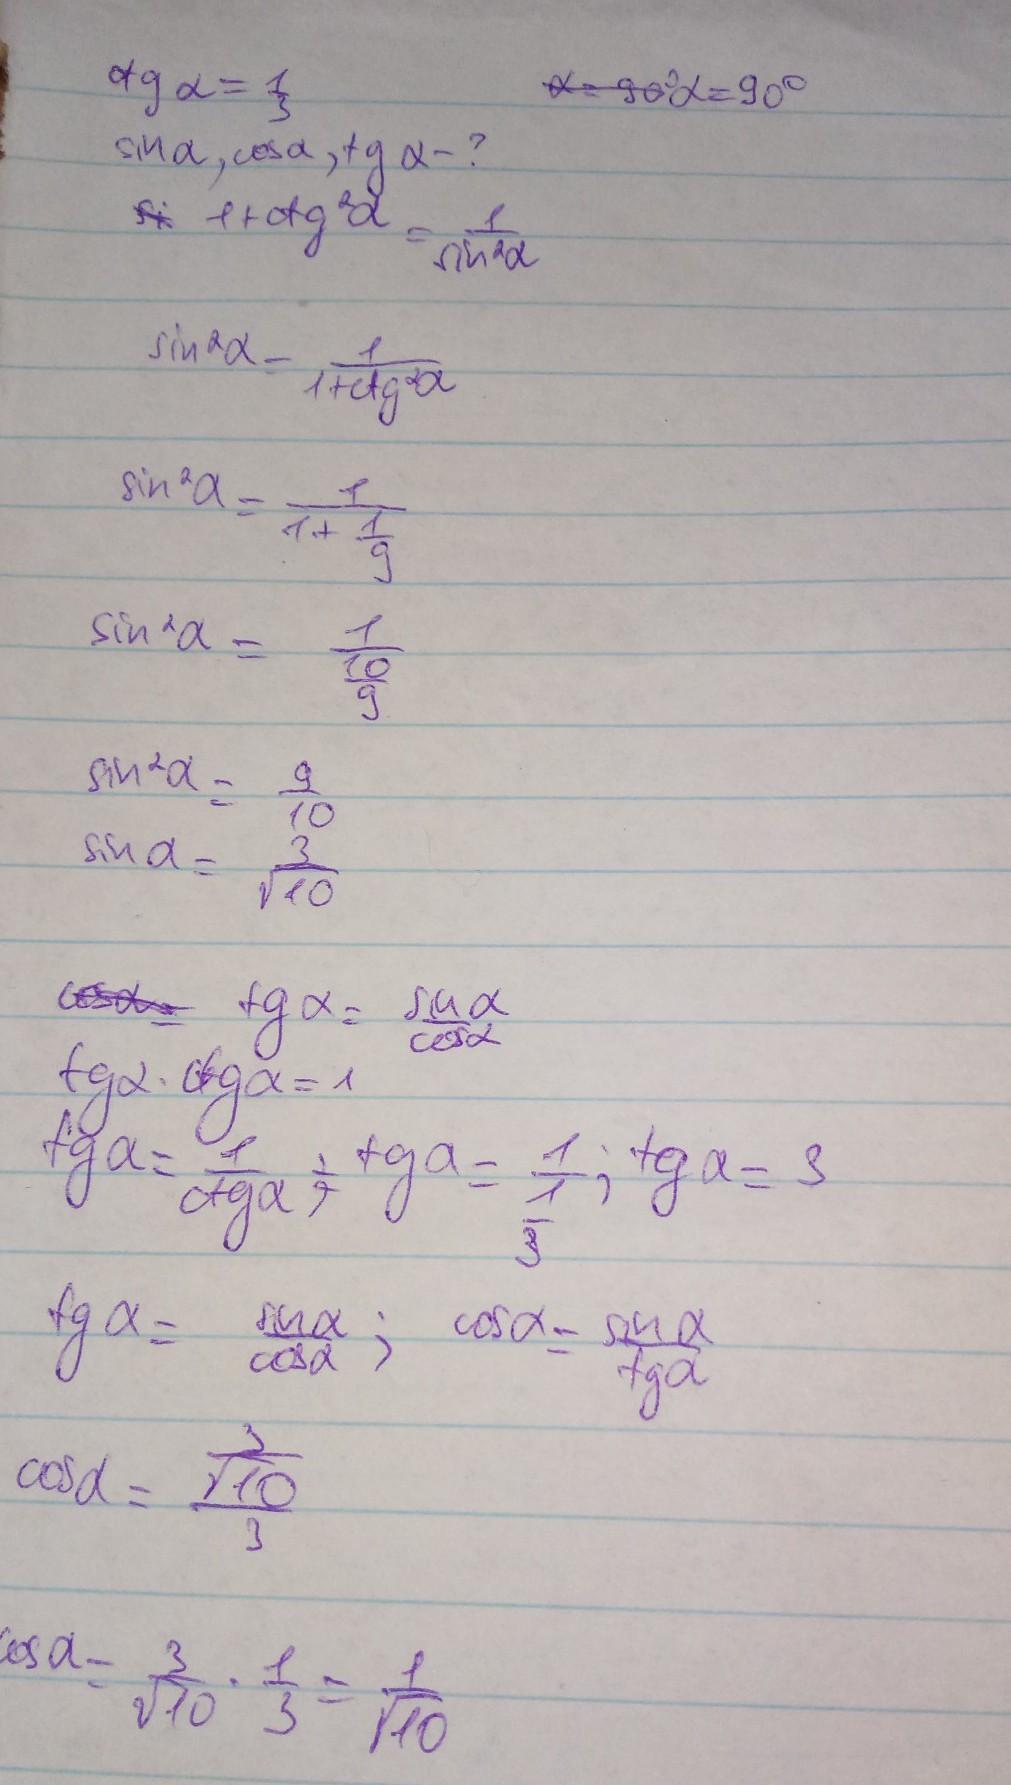 ctg α = 1/3 α = 90° α = 90°
sin α, cos α, tg α - ?
si 1 + ctg²α = 1/sin²α
sin²α = 1/(1 + ctg²α)
sin²α = 1/(1 + 1/9)
sin²α = 1/(10/9)
sin²α = 9/10
sin α = 3/√10
cos α = tg α = sin α/cos α
tg α · ctg α = 1
tg α = 1/ctg α ; tg α = 1/(1/3) ; tg α = 3
tg α = sin α/cos α ; cos α = sin α/tg α
cos α = (3/√10)/3
cos α = 3/√10 · 1/3 = 1/√10